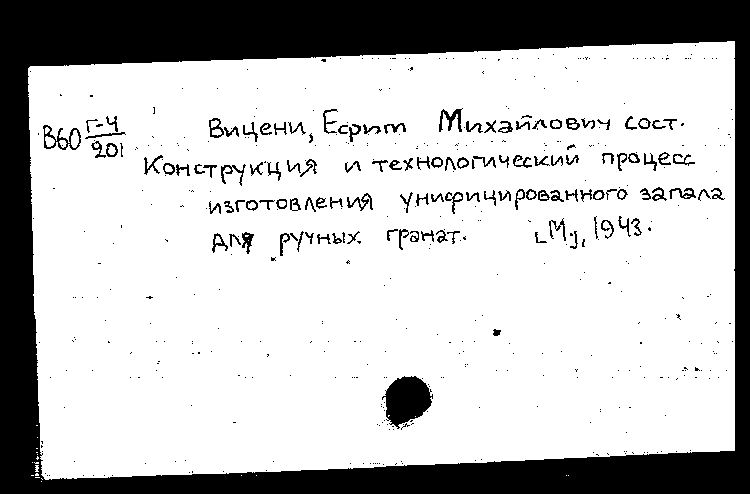 В60 Г-4/201 Вицени, Ефрит Михайлович сост.
Конструкция и технологический процесс
изготовления унифицированного запала
для ручных гранат. [М.], 1943.